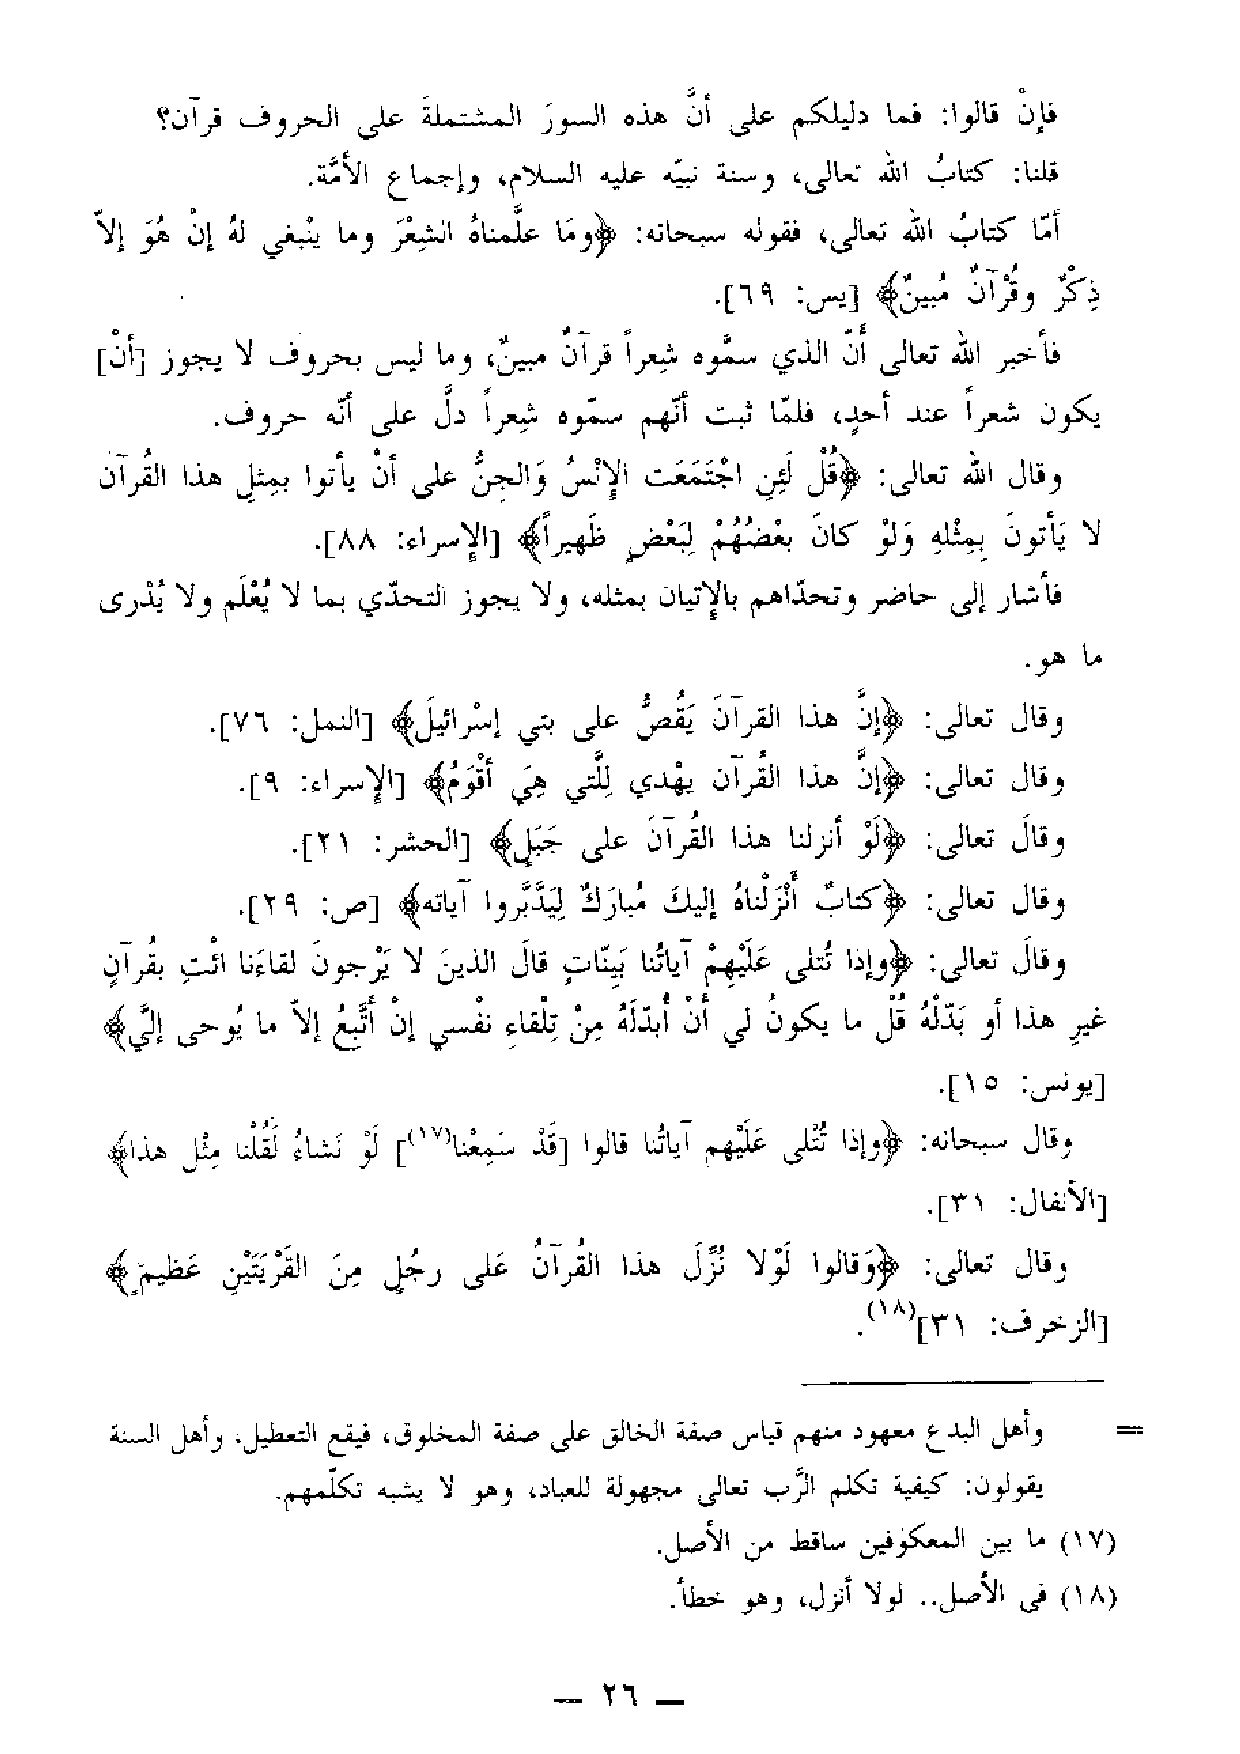 فإنْ قالوا: فما دليلكم على أنَّ هذه السورَ المشتملةَ على الحروف قرآن؟
قلنا: كتابُ الله تعالى، وسنة نبيّه عليه السلام، وإجماع الأمَّة.
أمّا كتابُ الله تعالى، فقوله سبحانه: ﴿ومَا علَّمناهُ الشِعْرَ وما ينْبغي لهُ إنْ هُوَ إلاّ
ذِكْرٌ وقُرْآنٌ مُبينٌ﴾ [يس: ٦٩].
فأخبر الله تعالى أنّ الذي سمَّوه شِعراً قرآنٌ مبينٌ، وما ليس بحروف لا يجوز [أنْ]
يكون شعراً عند أحدٍ، فلمّا ثبت أنّهم سمّوه شِعراً دلَّ على أنّه حروف.
وقال الله تعالى: ﴿قُلْ لَئِنِ اجْتَمَعَت الإنْسُ وَالجِنُّ على أنْ يأتوا بمِثلِ هذا القُرآنَ
لا يَأتونَ بِمِثْلهِ وَلوْ كانَ بعْضُهُمْ لِبَعْضٍ ظَهيراً﴾ [الإسراء: ٨٨].
فأشار إلى حاضر وتحدّاهم بالإتيان بمثله، ولا يجوز التحدّي بما لا يُعْلَم ولا يُدْرى
ما هو.
وقال تعالى: ﴿إنَّ هذا القرآنَ يَقُصُّ على بني إسْرائيلَ﴾ [النمل: ٧٦].
وقال تعالى: ﴿إنَّ هذا القُرآن يهْدي لِلَّتي هِيَ أقْوَمُ﴾ [الإسراء: ٩].
وقالَ تعالى: ﴿لَوْ أنزلنا هذا القُرآنَ على جَبَلٍ﴾ [الحشر: ٢١].
وقال تعالى: ﴿كتابٌ أنْزَلْناهُ إليكَ مُبارَكٌ لِيَدَّبَّروا آياته﴾ [ص: ٢٩].
وقالَ تعالى: ﴿وإذا تُتلى عَلَيْهِمْ آياتُنا بَيِّناتٍ قالَ الذينَ لا يَرْجونَ لقاءَنا ائْتِ بقُرآنٍ
غيرِ هذا أو بَدّلْهُ قُلْ ما يكونُ لي أنْ أُبدّلَهُ مِنْ تِلْقاءِ نفْسي إنْ أتَّبعُ إلاّ ما يُوحى إليَّ﴾
[يونس: ١٥].
وقال سبحانه: ﴿وإذا تُتْلى عَلَيْهِم آياتُنا قالوا [قَدْ سَمِعْنا(١٧)] لَوْ نَشاءُ لَقُلْنا مِثْل هذا﴾
[الأنفال: ٣١].
وقال تعالى: ﴿وَقالوا لَوْلا نُزِّلَ هذا القُرآنُ على رجُلٍ مِنَ القَرْيَتَيْنِ عَظيمٍ﴾
[الزخرف: ٣١](١٨).
= وأهل البدع معهود منهم قياس صفة الخالق على صفة المخلوق، فيقع التعطيل. وأهل السنة
يقولون: كيفية تكلم الرَّب تعالى مجهولة للعباد، وهو لا يشبه تكلّمهم.
(١٧) ما بين المعكوفين ساقط من الأصل.
(١٨) في الأصل.. لولا أنزل، وهو خطأ.
— ٢٦ —